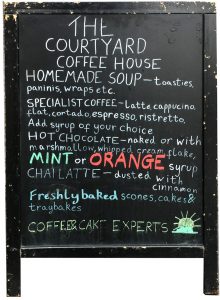 THE
COURTYARD
COFFEE HOUSE
HOMEMADE SOUP - toasties,
paninis, wraps etc.
SPECIALIST COFFEE - Latte, cappucino,
flat, cortado, espresso, ristretto,
Add syrup of your choice
HOT CHOCOLATE - naked or with
marshmallow, whipped cream, flake,
MINT or ORANGE syrup
CHAI LATTE - dusted with
cinnamon
Freshly baked scones, cakes &
traybakes
COFFEE & CAKE EXPERTS